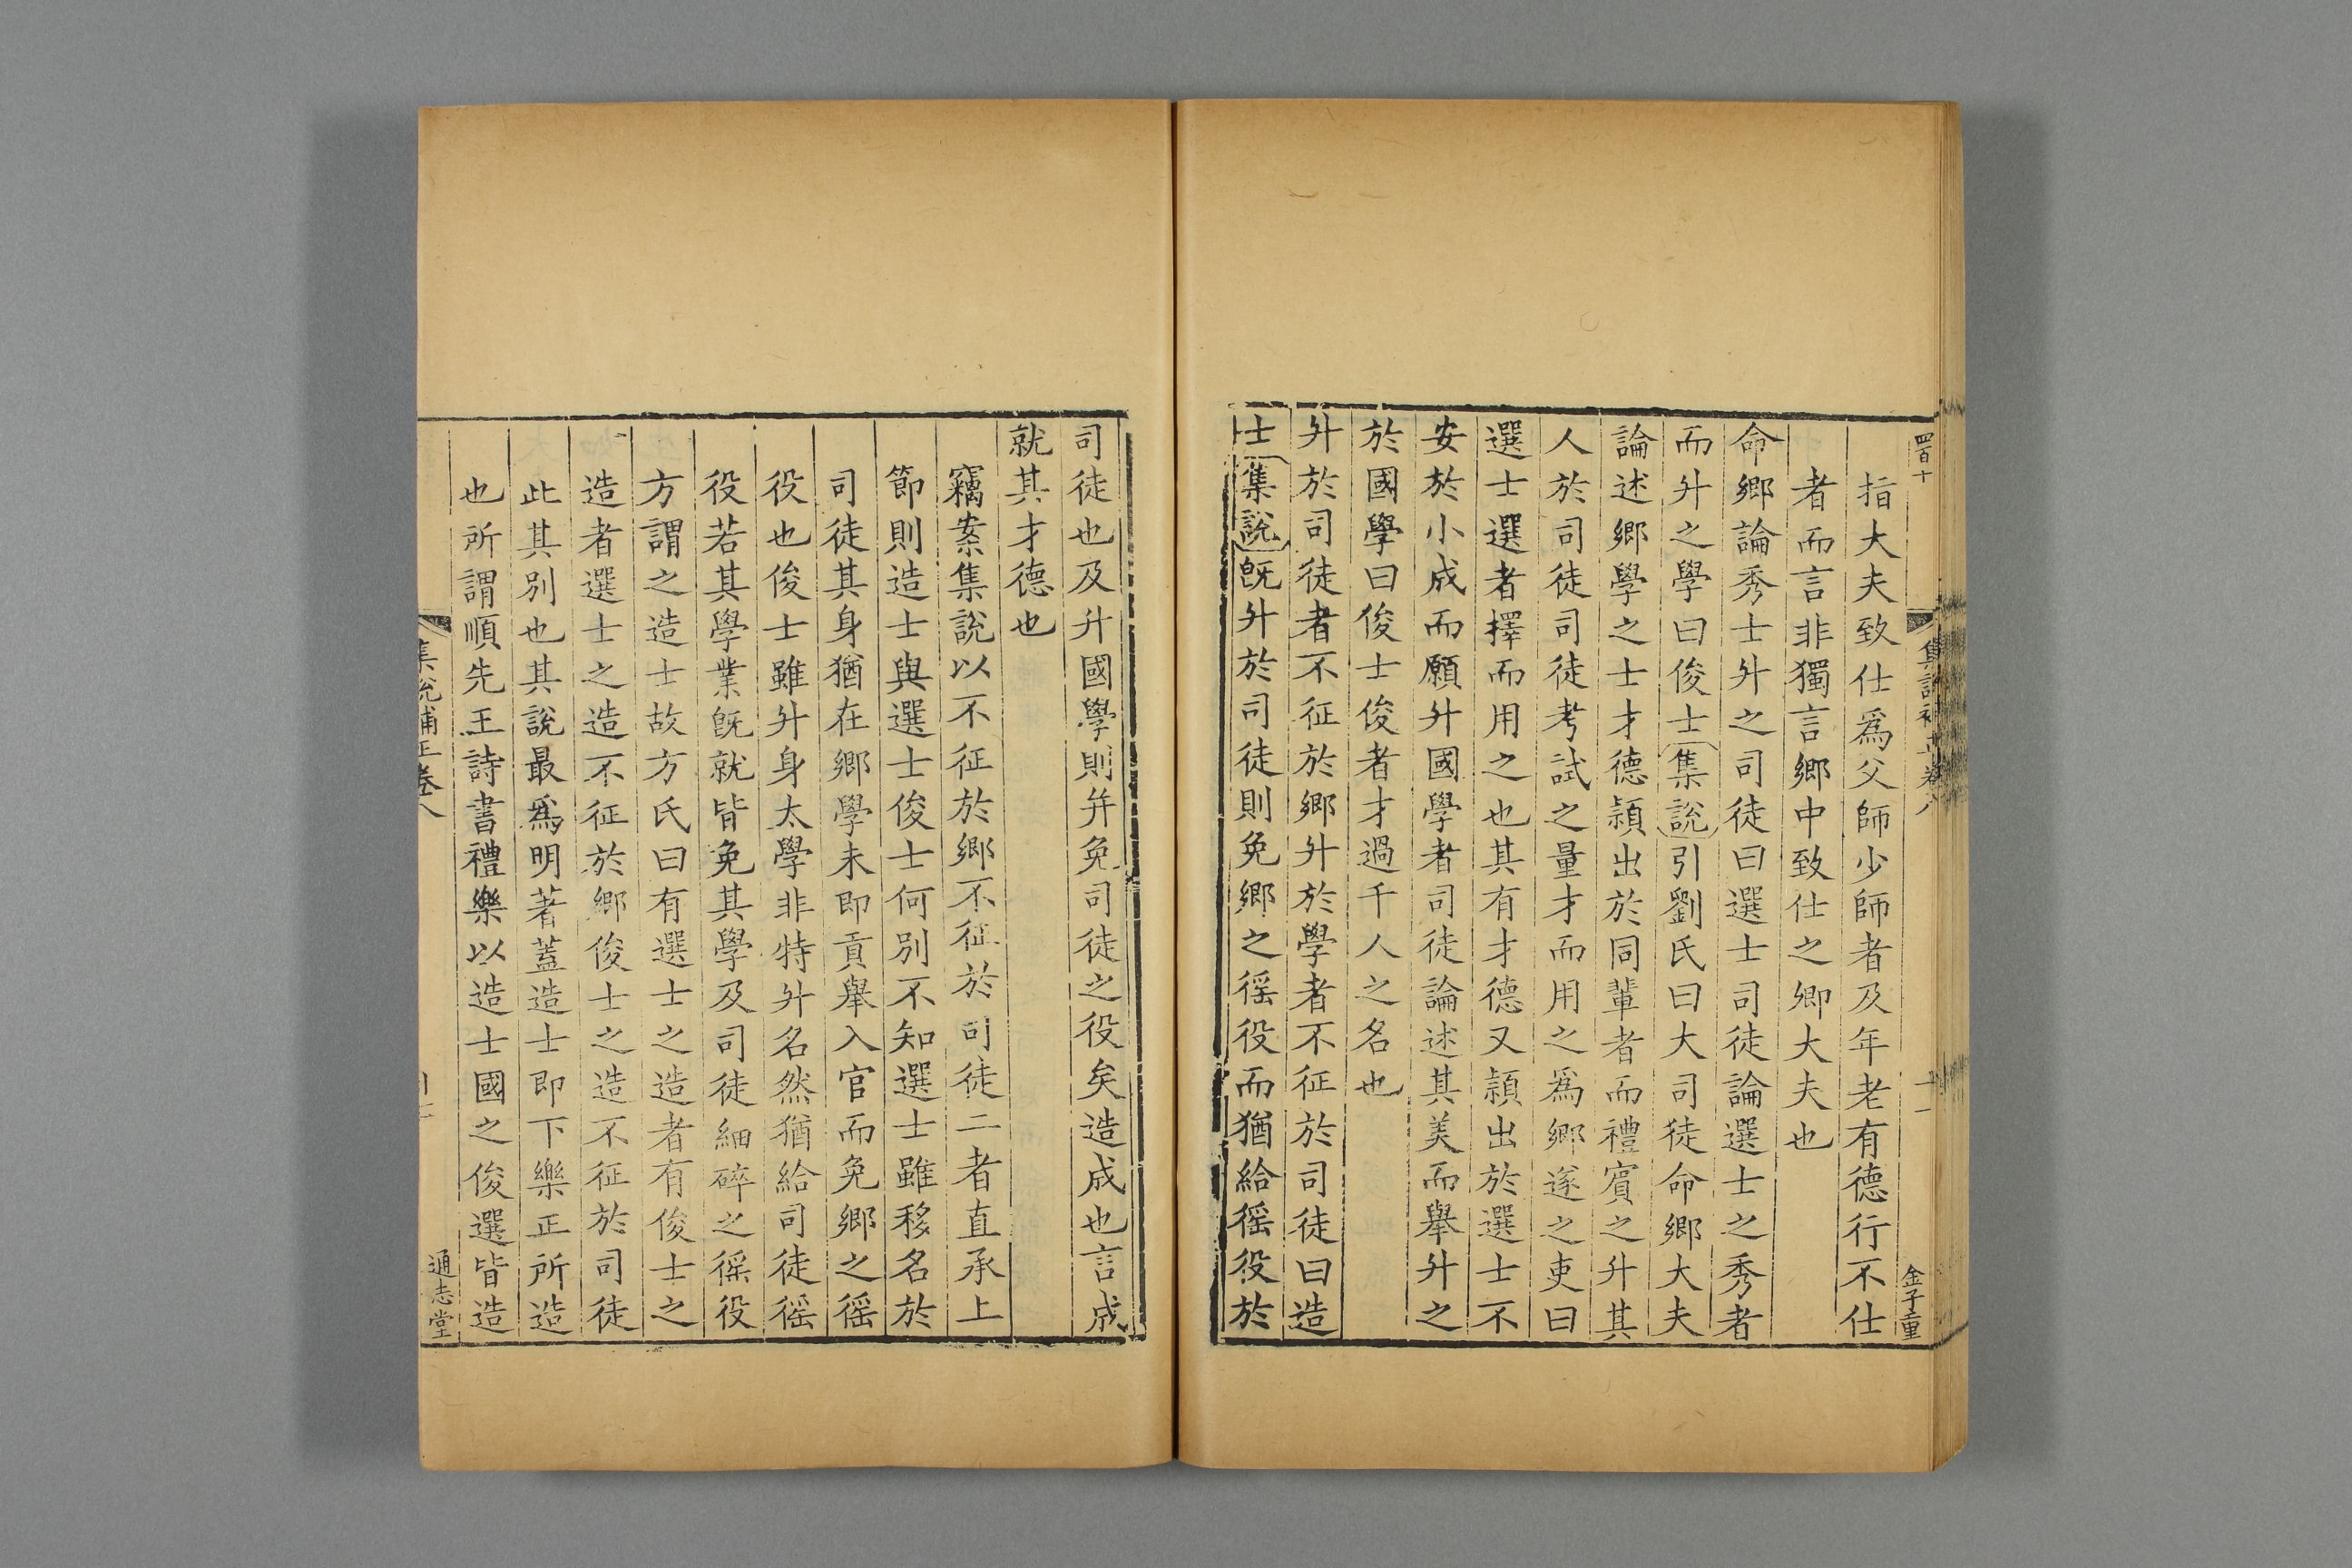 四百十
集說補正卷八
十一
金子重
指大夫致仕爲父師少師者及年老有德行不仕
者而言非獨言鄉中致仕之卿大夫也
命鄉論秀士升之司徒曰選士司徒論選士之秀者
而升之學曰俊士集說引劉氏曰大司徒命鄉大夫
論述鄉學之士才德頴出於同輩者而禮賓之升其
人於司徒司徒考試之量才而用之爲鄉遂之吏曰
選士選者擇而用之也其有才德又頴出於選士不
安於小成而願升國學者司徒論述其美而舉升之
於國學曰俊士俊者才過千人之名也
升於司徒者不征於鄉升於學者不征於司徒曰造
士集說旣升於司徒則免鄉之徭役而猶給徭役於
司徒也及升國學則幷免司徒之役矣造成也言成
就其才德也
竊案集說以不征於鄉不征於司徒二者直承上
節則造士與選士俊士何別不知選士雖移名於
司徒其身猶在鄉學未即貢舉入官而免鄉之徭
役也俊士雖升身太學非特升名然猶給司徒徭
役若其學業旣就皆免其學及司徒細碎之徭役
方謂之造士故方氏曰有選士之造者有俊士之
造者選士之造不征於鄉俊士之造不征於司徒
此其別也其說最爲明著蓋造士即下樂正所造
也所謂順先王詩書禮樂以造士國之俊選皆造
集說補正卷八
通志堂